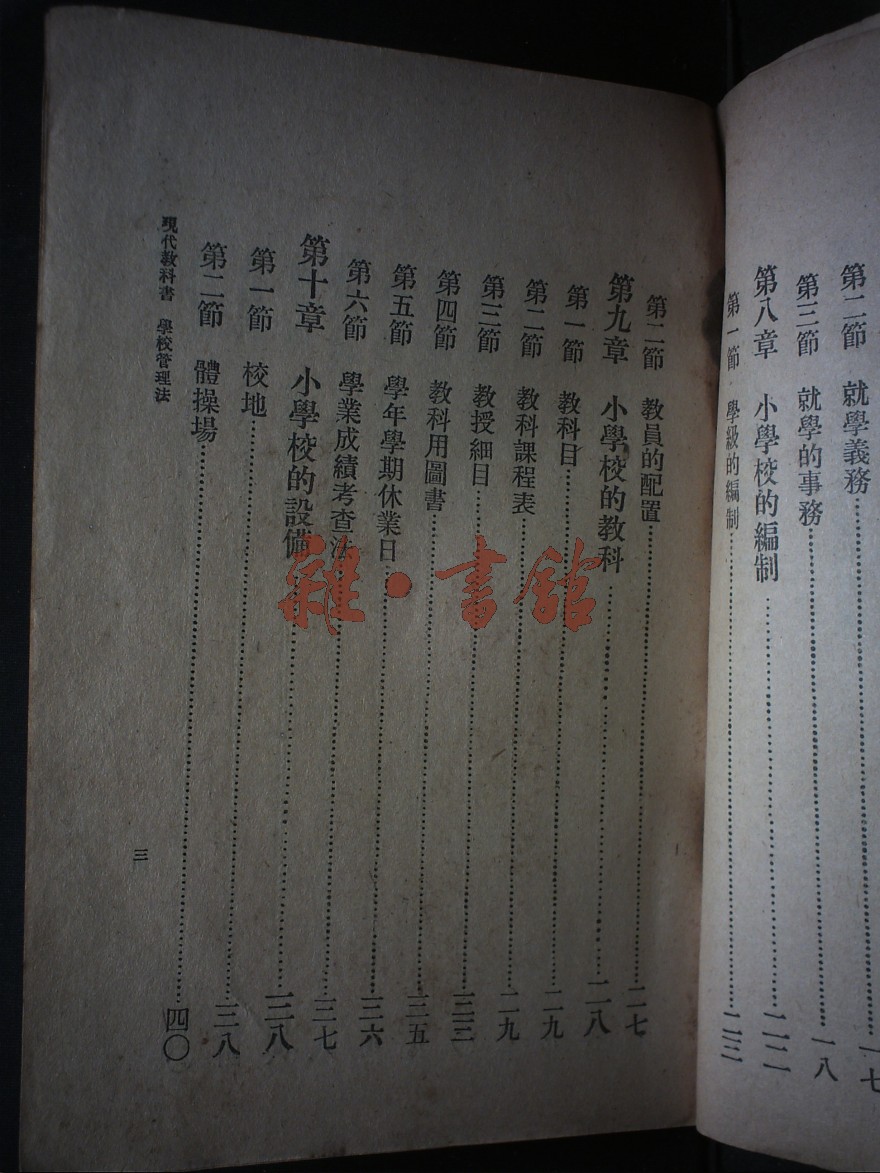 第二節　就學義務………一七
第三節　就學的事務………一八
第八章　小學校的編制………二二
第一節　學級的編制………二三
第二節　教員的配置………二七
第九章　小學校的教科………二八
第一節　教科目………二九
第二節　教科課程表………二九
第三節　教授細目………三三
第四節　教科用圖書………三五
第五節　學年學期休業日………三六
第六節　學業成績考查法………三七
第十章　小學校的設備………三八
第一節　校地………三八
第二節　體操場………四〇
現代教科書　學校管理法
三
雜·書館